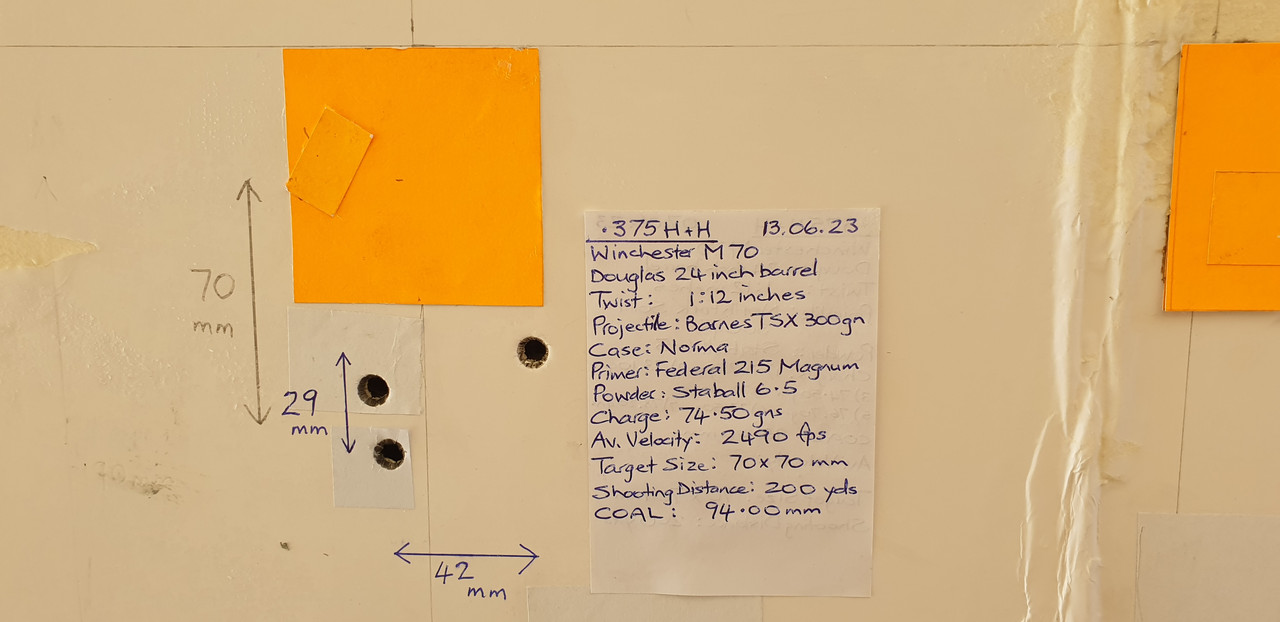 70
mm
29
mm
42
mm
.375 H+H 13.06.23
Winchester M 70
Douglas 24 inch barrel
Twist: 1:12 inches
Projectile: Barnes TSX 300gn
Case: Norma
Primer: Federal 215 Magnum
Powder: Staball 6.5
Charge: 74.50 gns
Av. Velocity: 2490 fps
Target Size: 70 x 70 mm
Shooting Distance: 200 yds
COAL: 94.00 mm